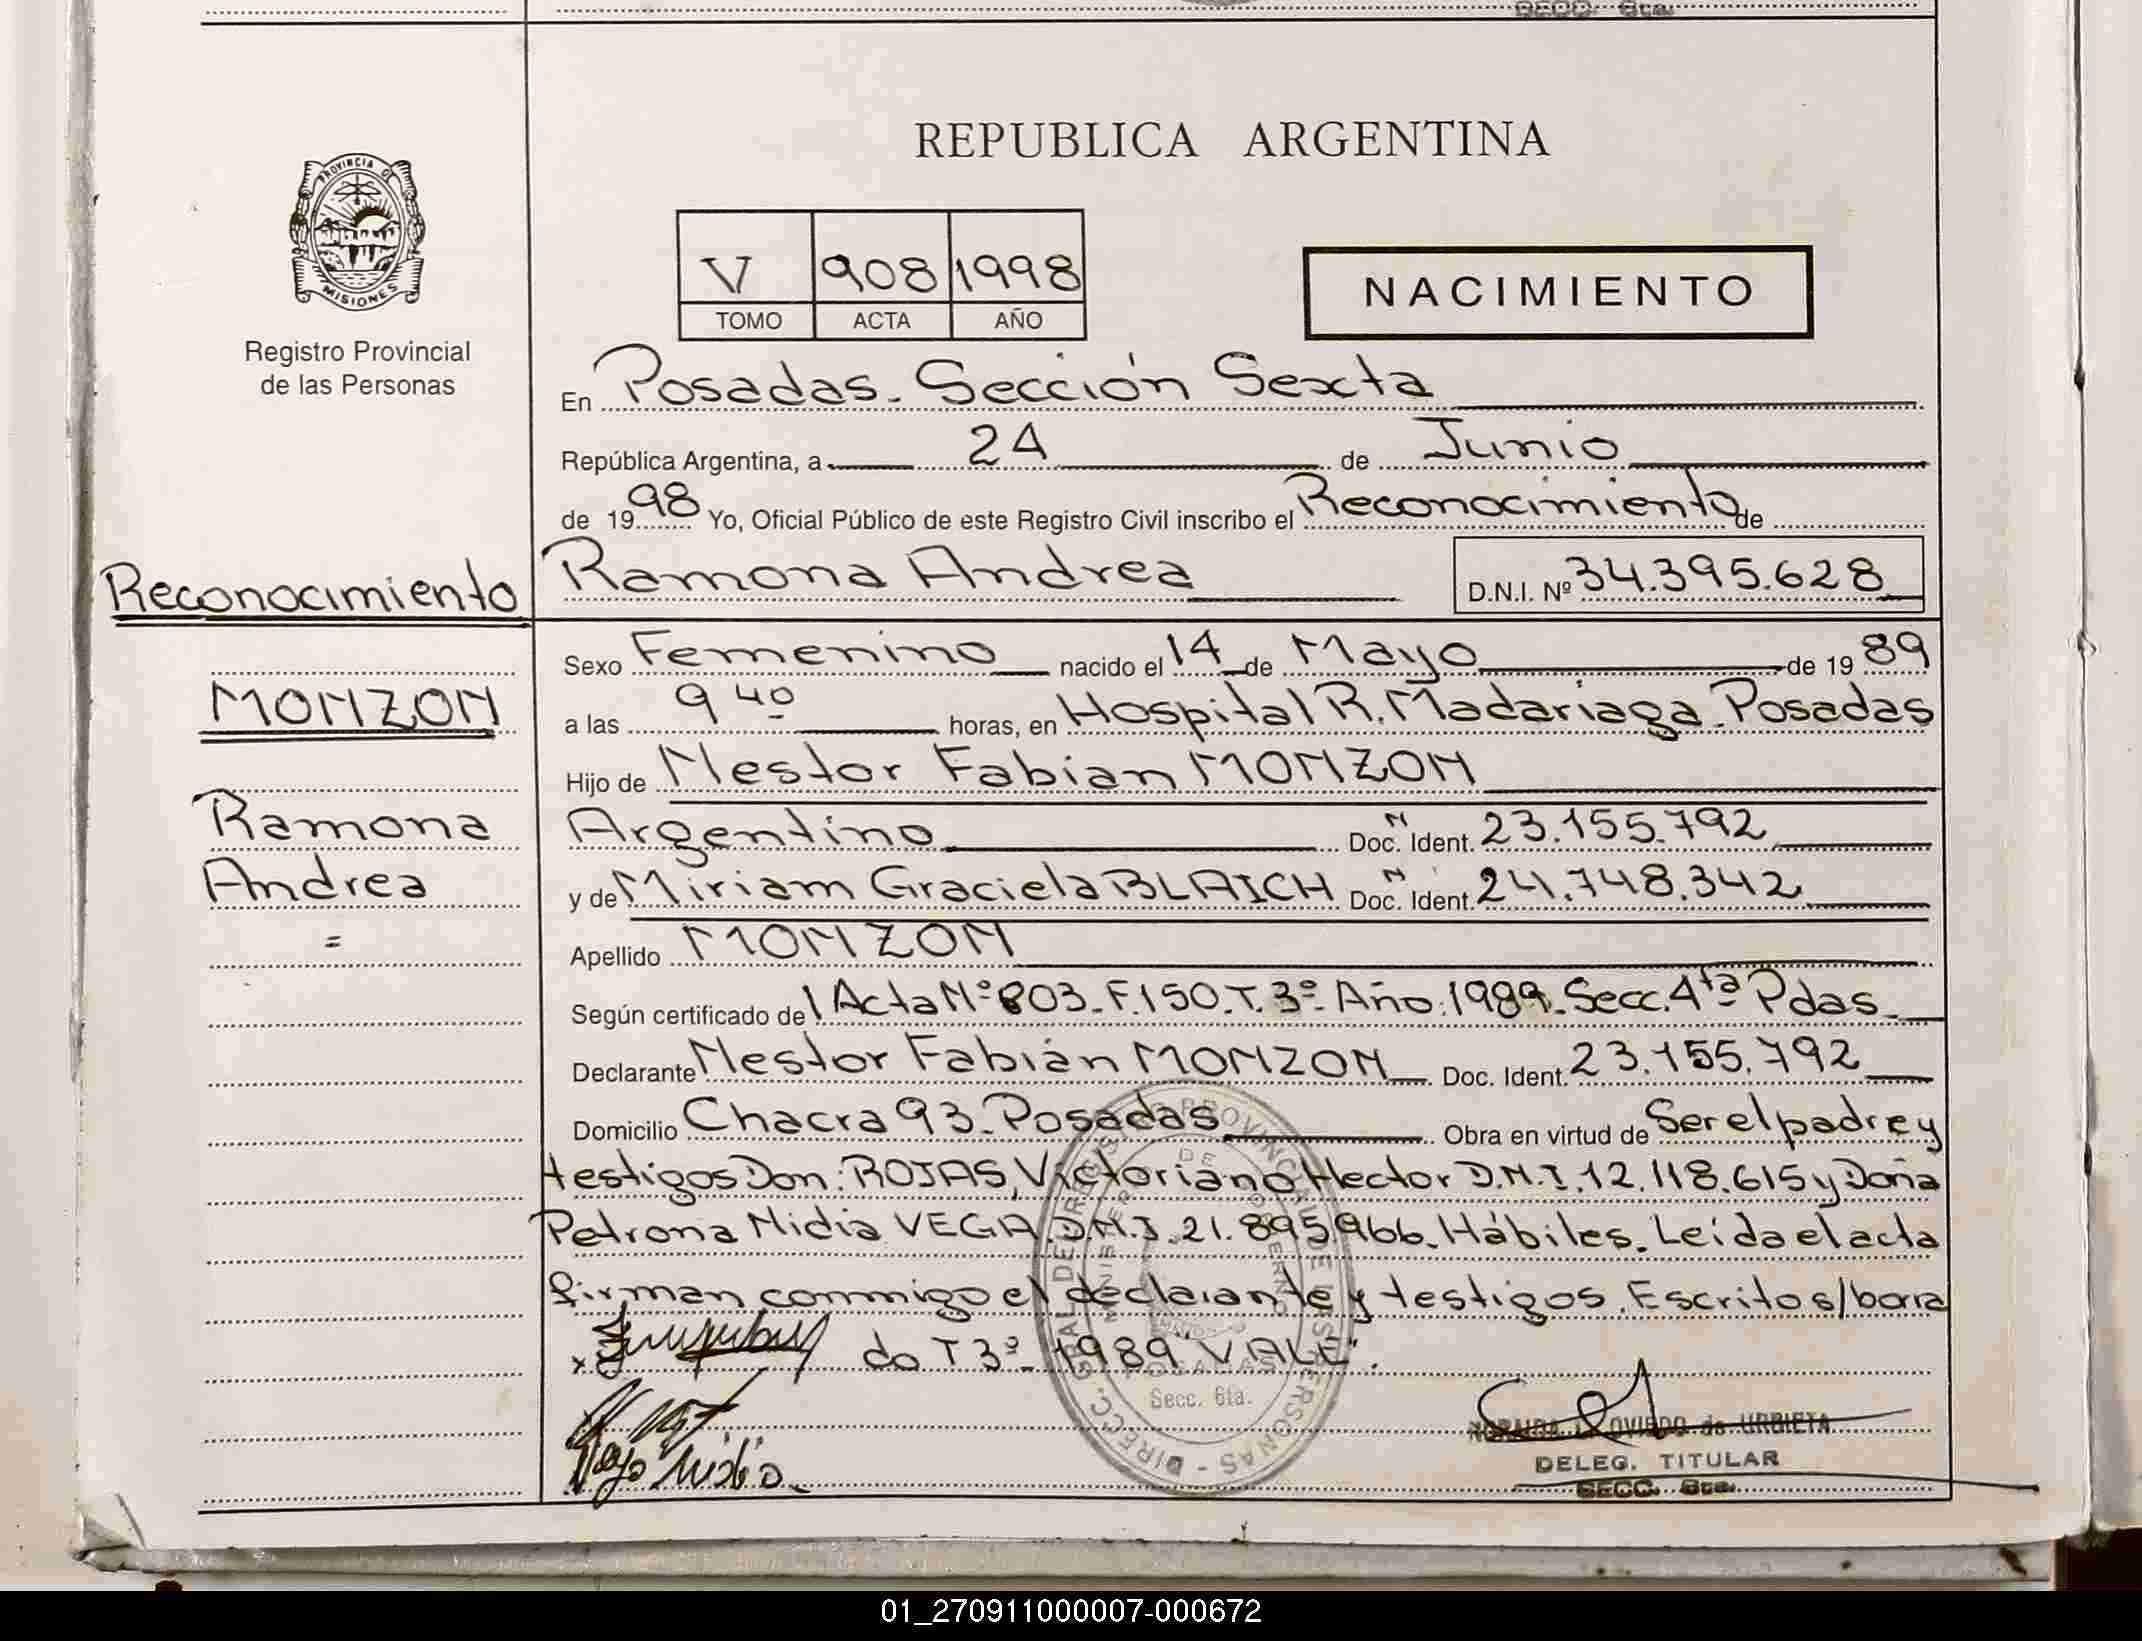 SECC. 6ta.
REPUBLICA ARGENTINA
PROVINCIA DE
MISIONES
Registro Provincial
de las Personas
V 908 1998
TOMO ACTA AÑO
NACIMIENTO
En Posadas. Sección Sexta
República Argentina, a 24 de Junio
de 1998 Yo, Oficial Público de este Registro Civil inscribo el Reconocimiento de
Reconocimiento
Ramona Andrea D.N.I. Nº 34.395.628
Sexo Femenino nacido el 14 de Mayo de 1989
MONZON
a las 9 40 horas, en Hospital R. Madariaga. Posadas
Hijo de Nestor Fabian MONZON
Ramona
Andrea
=
Argentino Doc. N Ident. 23.155.792
y de Miriam Graciela BLAICH Doc. N Ident. 24.748.342
Apellido MONZON
Según certificado de 1 Acta Nº 803. F. 150. T. 3º. Año: 1989. Secc. 4ta Pdas.
Declarante Nestor Fabián MONZON Doc. Ident. 23.155.792
Domicilio Chacra 93. Posadas Obra en virtud de Ser el padre y
testigos Don: ROJAS, Victoriano Hector D.N.I. 12.118.615 y Doña
Petrona Nidia VEGA. D.N.I. 21.895.966. Hábiles. Leída el acta
firman conmigo el declarante y testigos. Escritos/borra
do T 3º. 1989 "VALE".
DIRECC. GRAL. DEL REGISTRO PROVINCIAL DE LAS PERSONAS
MINISTERIO DE GOBIERNO
POSADAS
Secc. 6ta.
OVIEDO de URBIETA
DELEG. TITULAR
SECC. 6ta.
01_270911000007-000672